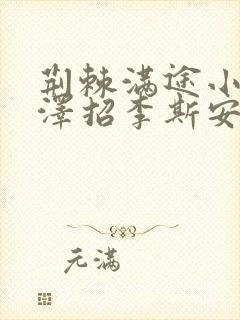 荆棘满途小
泽招李斯安
元满